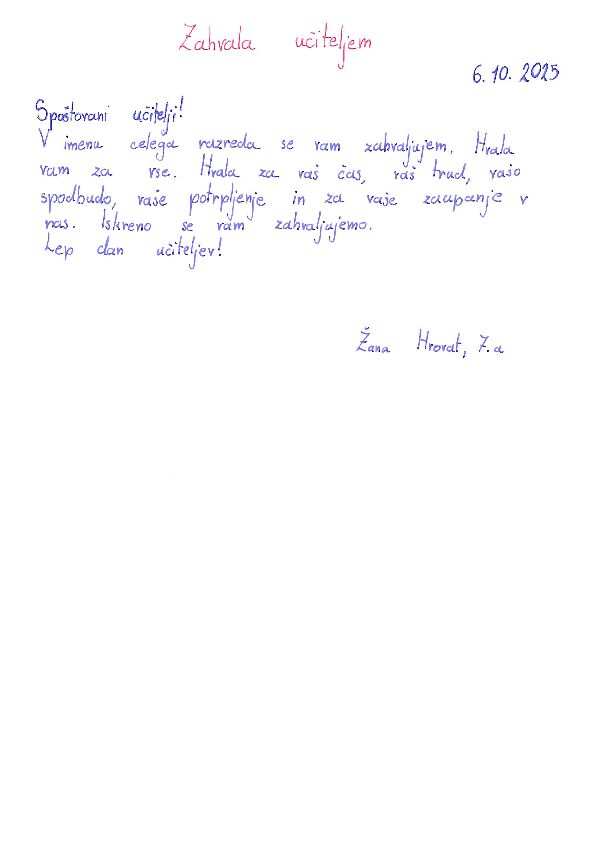 Zahvala učiteljem
6. 10. 2025
Spoštovani učitelji!
V imenu celega razreda se vam zahvaljujem. Hvala
vam za vse. Hvala za vaš čas, vaš trud, vašo
spodbudo, vaše potrpljenje in za vaše zaupanje v
nas. Iskreno se vam zahvaljujemo.
Lep dan učiteljev!
Žana Hrovat, 7. a